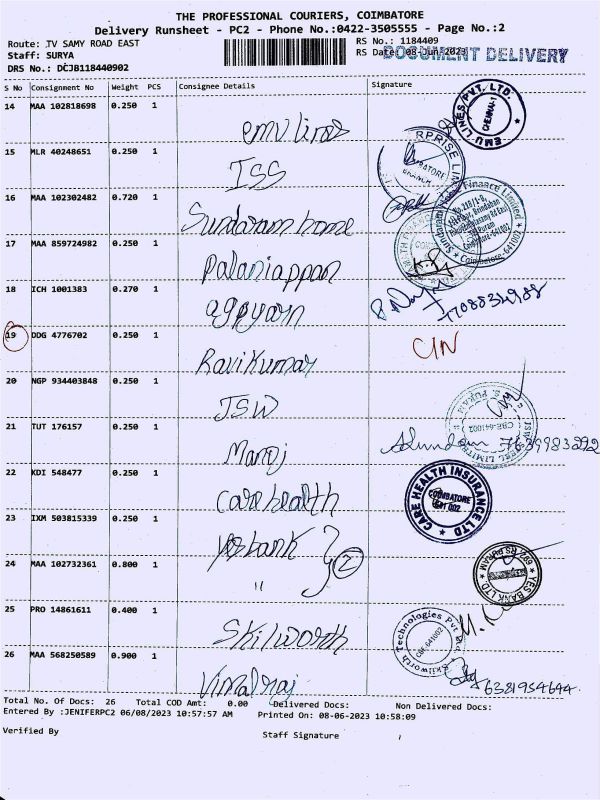 THE PROFESSIONAL COURIERS, COIMBATORE
Delivery Runsheet - PC2 - Phone No.:0422-3505555 - Page No.:2
Route: TV SAMY ROAD EAST
RS No.: 1184409
Staff: SURYA
RS Date: 08-Jun-2023
DOCUMENT DELIVERY
DRS No.: DCJB118440902
S No Consignment No Weight PCS Consignee Details Signature
14 MAA 102818698 0.250 1
emu lines
EMU LINES PVT. LTD. CHENNAI-1
15 MLR 40248651 0.250 1
ISS
16 MAA 102302482 0.720 1
Sundaram home
Sundaram Home Finance Limited
Coimbatore-641002
17 MAA 859724982 0.250 1
Palaniappan
18 ICH 1001383 0.270 1
7708834988
19 DDG 4776702 0.250 1
Ravikumar
C/N
20 NGP 934403848 0.250 1
JSW
CBE-641002
21 TUT 176157 0.250 1
Manoj
7639983292
22 KDI 548477 0.250 1
Care health
CARE HEALTH INSURANCE LTD
COIMBATORE
641 002
23 IXM 503815339 0.250 1
Yes bank
2
24 MAA 102732361 0.800 1
"
YES BANK LTD.
25 PRO 14861611 0.400 1
Skilworth
Skilworth Technologies Pvt Ltd
CBE-641002
26 MAA 568250589 0.900 1
Vimalraj
6381954644
Total No. Of Docs: 26 Total COD Amt: 0.00 Delivered Docs: Non Delivered Docs:
Entered By :JENIFERPC2 06/08/2023 10:57:57 AM Printed On: 08-06-2023 10:58:09
Verified By
Staff Signature